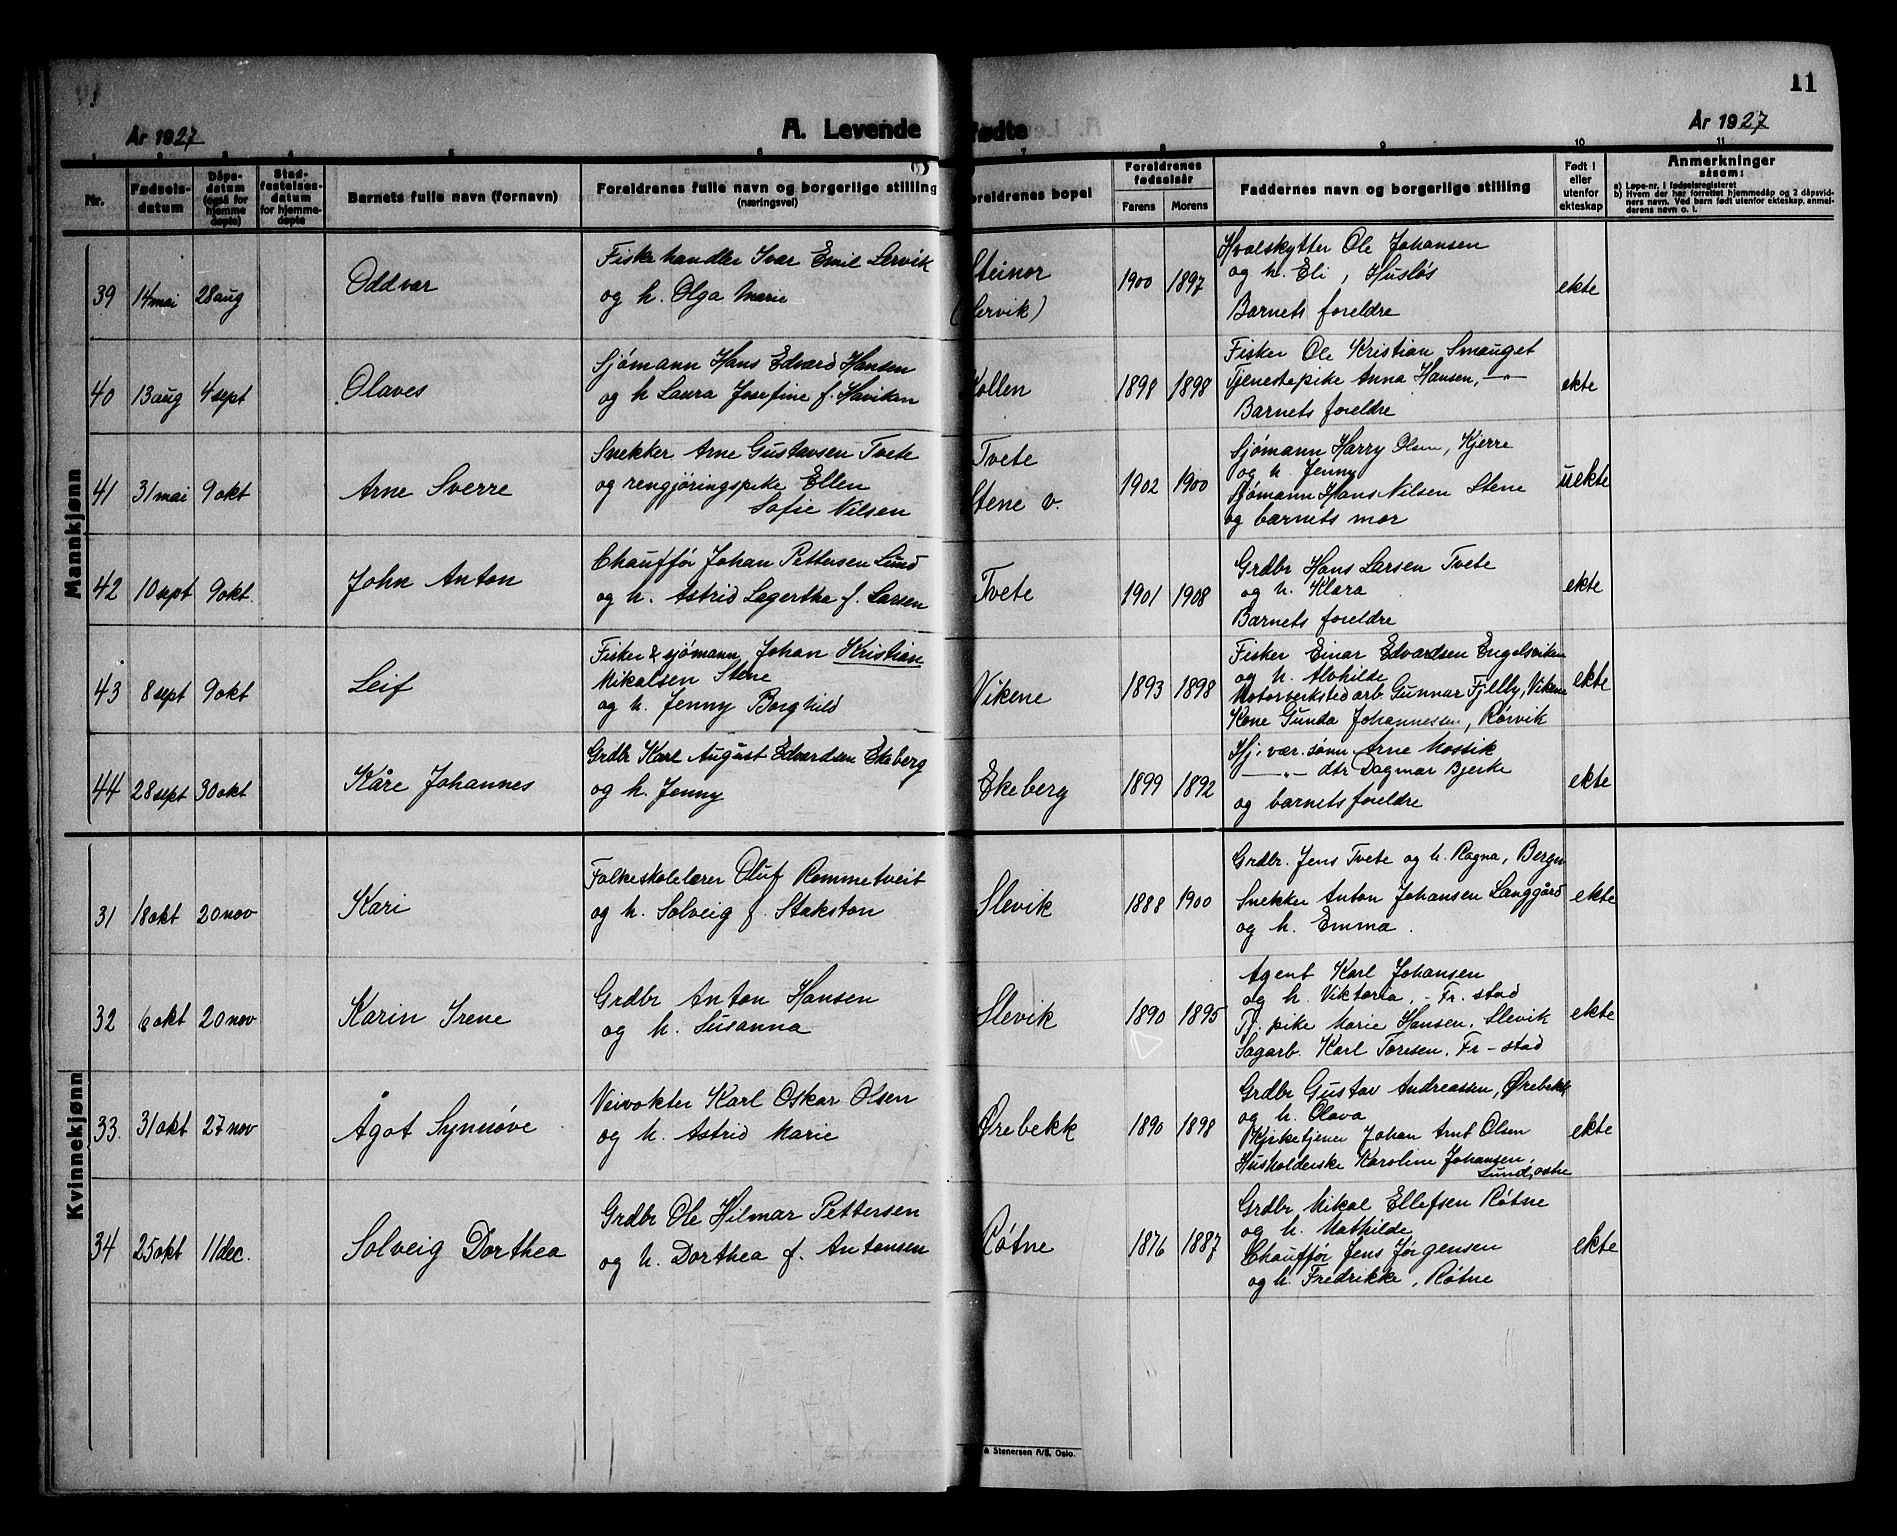 11
År 1927
A. Levende fødte
År 1927
1 2 3 4 5 6 7 8 9 10 11
Nr.
Fødsels-
datum
Dåps-
datum
(også for
hjemme
døpte)
Stad-
festelses-
datum
for hjemme-
døpte
Barnets fulle navn (fornavn)
Foreldrenes fulle navn og borgerlige stilling
(næringsvei)
Foreldrenes bopel
Foreldrenes
fødselsår
Farens Morens
Faddernes navn og borgerlige stilling
Født i
eller
utenfor
ekteskap
Anmerkninger
såsom:
a) Løpe-nr. i fødselsregisteret
b) Hvem der har forrettet hjemmedåp og 2 dåpsvid-
ners navn. Ved barn født utenfor ekteskap, anmel-
derens navn o. l.
Mannkjønn
39 14 mai 28 aug Oddvar
Fiskehandler Ivar Emil Lervik
og h. Olga Marie
Steinor
(Lervik)
1900 1897
Hvalskytter Ole Johansen
og h. Eli, Husløs
Barnets foreldre
ekte
40 13 aug 4 sept Olaves
Sjømann Hans Edvard Hansen
og h Laura Josefine f. Havikan
Kollen
1898 1898
Fisker Ole Kristian Smauget
Tjenestepike Anna Hansen, —"—
Barnets foreldre
ekte
41 31 mai 9 okt Arne Sverre
Snekker Arne Gustavsen Tvete
og rengjøringspike Ellen
Sofie Nilsen
Tvete
Stene v.
1902 1900
Sjømann Harry Olsen, Kjerre
og h. Jenny
Sjømann Hans Nilsen Stene
og barnets mor
uekte
42 10 sept 9 okt. John Anton
Chauffør Johan Pettersen Lund
og h. Astrid Lagertha f. Larsen
Tvete
1901 1908
Grdbr Hans Larsen Tvete
og h. Klara
Barnets foreldre
ekte
43 8 sept 9 okt Leif
Fisker & sjømann Johan Kristian
Mikalsen Stene
og h. Jenny Borghild
Vikene
1893 1898
Fisker Einar Edvardsen Engelsviken
og h. Alvhilde
Motorverkstedarb Gunnar Fjelby, Vikene
Kone Gunda Johannessen, Rørvik
ekte
44 28 sept 30 okt Kåre Johannes
Grdbr Karl August Edvardsen Ekeberg
og h. Jenny
Ekeberg
1899 1892
Hj. vær. sønn Arne Mossik
—"— dtr Dagmar Bjerke
og barnets foreldre
ekte
Kvinnekjønn
31 18 okt 20 nov Kari
Folkeskolelærer Oluf Rommetveit
og h. Solveig f. Stakston
Slevik
1888 1900
Grdbr. Jens Tvete og h. Ragna, Bergn
Snekker Anton Johansen Langgård
og h. Emma.
ekte
32 6 okt 20 nov Karin Irene
Grdbr Anton Hansen
og h. Susanna
Slevik
1890 1895
Agent Karl Johansen
og h. Viktoria, - Fr. stad
Tj. pike Marie Hansen, Slevik
Sagarb. Karl Toresen, Fr-stad
ekte
33. 31 okt 27 nov Ågot Synnøve
Veivokter Karl Oskar Olsen
og h. Astrid Marie
Ørebekk
1890 1898
Grdbr Gustav Andreassen, Ørebekk
og h. Olava
Kirketjener Johan Arnt Olsen
Husholderske Karoline Johansen,
Lund, østre
ekte
34 25 okt 11 dec. Solveig Dorthea
Grdbr Ole Hilmar Pettersen
og h. Dorthea f. Antonsen
Røtne
1876 1887
Grdbr Mikal Ellefsen Røtne
og h. Mathilde
Chauffør Jens Jørgensen
og h. Fredrikke, Røtne
ekte
& Stenersen A/S, Oslo.